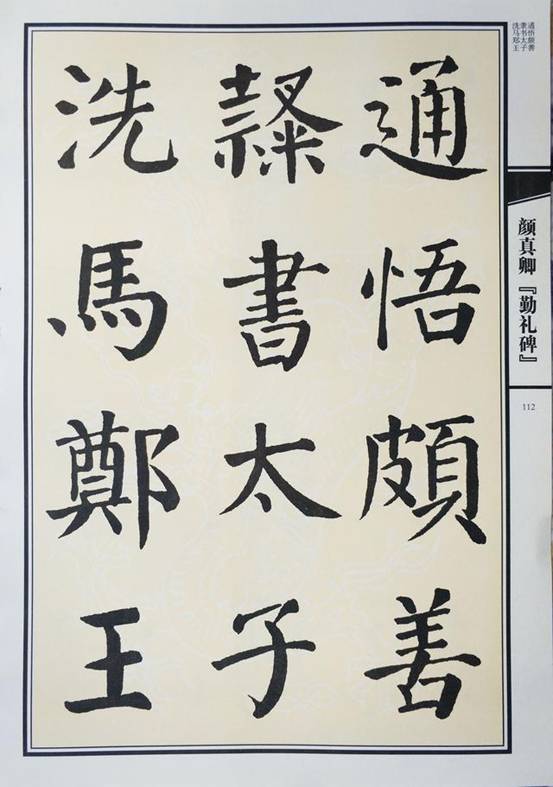 通悟頗善
隸書太子
洗馬鄭王
通悟颇善
隶书太子
洗马郑王
颜真卿『勤礼碑』
112